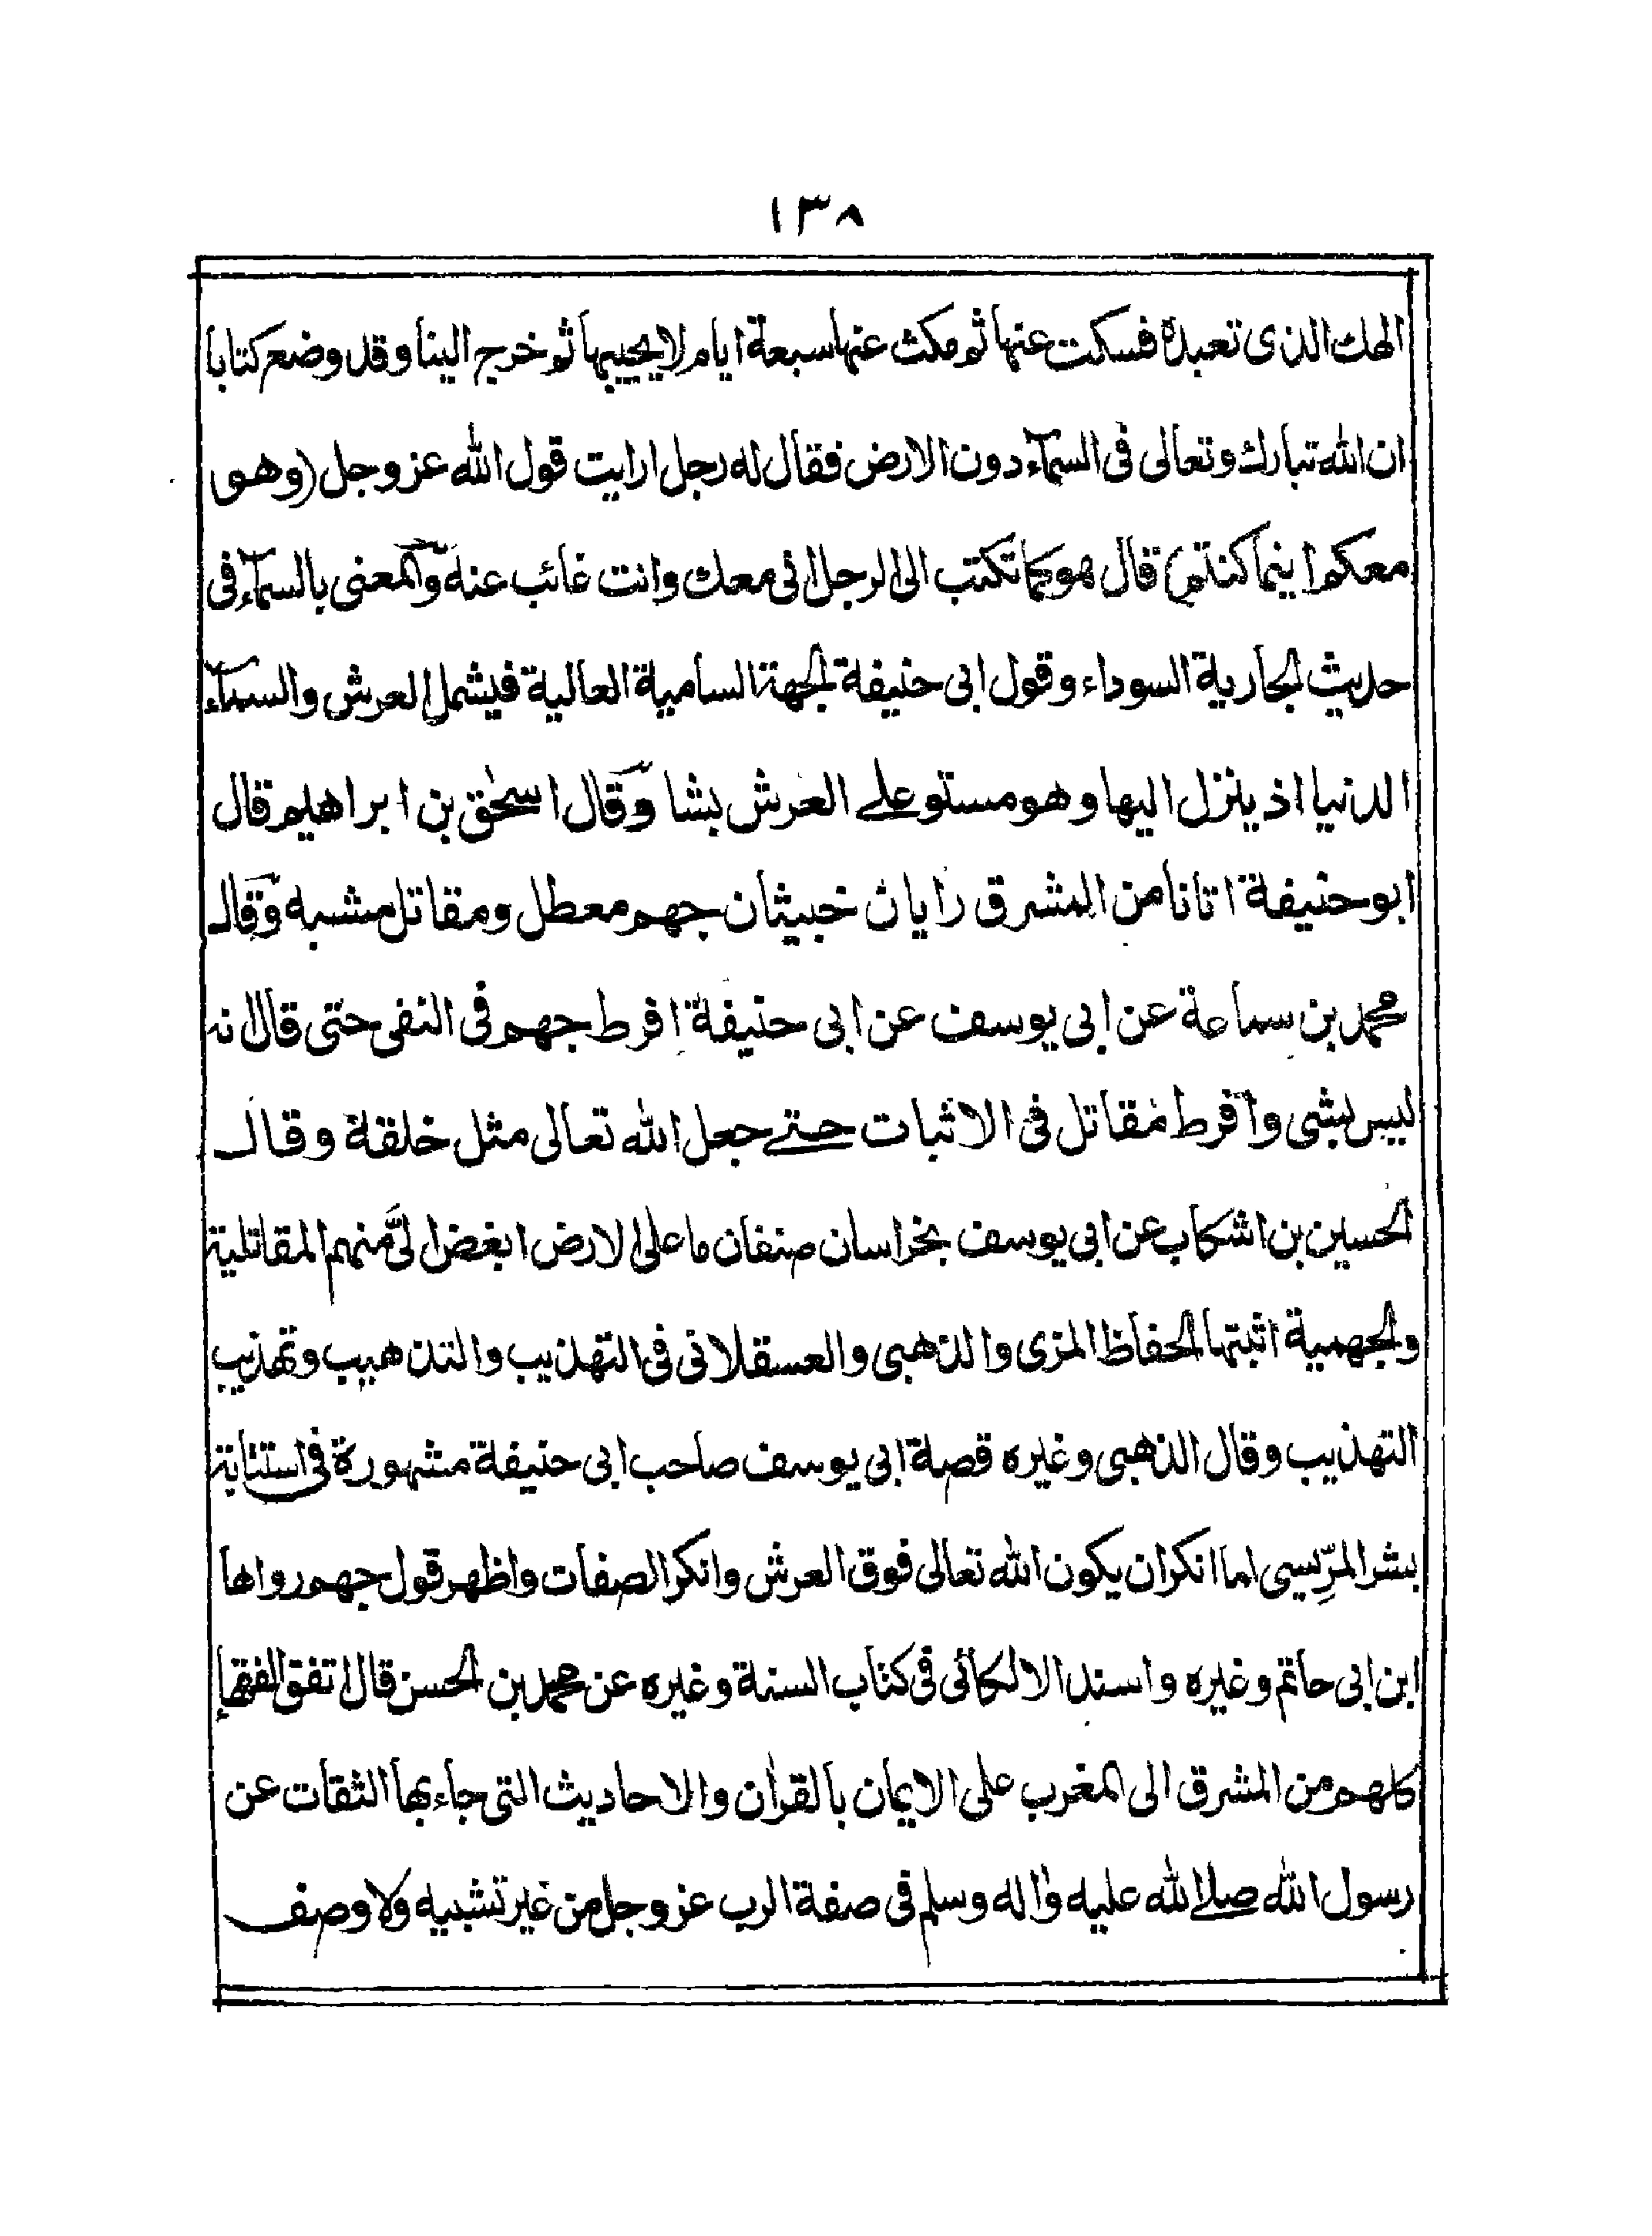 ١٣٨
الهك الذى تعبده فسكت عنها ثم مكث عنها سبعة ايام لا يجيبها ثم خرج الينا وقد وضع كتابا
ان الله تبارك وتعالى فى السمآء دون الارض فقال له رجل ارايت قول الله عز وجل (وهو
معكم اينما كنتم) قال هو كما تكتب الى الرجل انى معك وانت غائب عنه والمعنى بالسمآء فى
حديث الجارية السوداء وقول ابى حنيفة الجهة السامية العالية فيشمل العرش والسمآء
الدنيا اذ ينزل اليها وهو مستو على العرش بشا وقال اسحٰق بن ابراهيم قال
ابو حنيفة اتانا من المشرق رايان خبيثان جهم معطل ومقاتل مشبه وقال
محمد بن سماعة عن ابى يوسف عن ابى حنيفة افرط جهم فى النفى حتى قال انه
ليس بشى وافرط مقاتل فى الاثبات حتى جعل الله تعالى مثل خلقة وقال
الحسين بن اشكاب عن ابى يوسف بخراسان صنفان ما على الارض ابغض الىَّ منهم المقاتلية
والجهمية اثبتها الحفاظ المزى والذهبى والعسقلانى فى التهذيب والتذهيب وتهذيب
التهذيب وقال الذهبى وغيره قصة ابى يوسف صاحب ابى حنيفة مشهورة فى استتابة
بشر المرِّيسى لما انكر ان يكون الله تعالى فوق العرش وانكر الصفات واظهر قول جهم رواها
ابن ابى حاتم وغيره واسند الالكائى فى كتاب السنة وغيره عن محمد بن الحسن قال اتفق الفقهاء
كلهم من المشرق الى المغرب على الايمان بالقرآن والاحاديث التى جاء بها الثقات عن
رسول الله صلى الله عليه وآله وسلم فى صفة الرب عز وجل من غير تشبيه ولا وصف